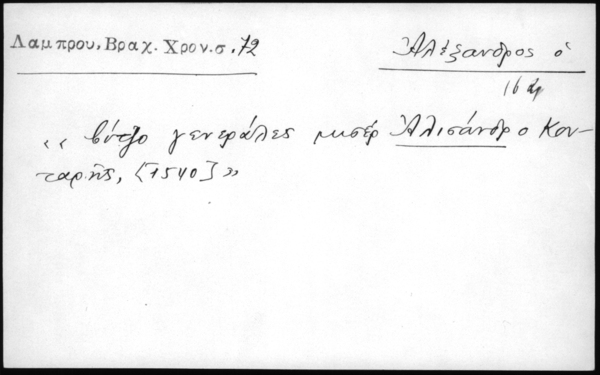 Λαμπρου, Βραχ. Χρον. σ. 72
Ἀλέξανδρος ὁ
16
«βίτζο γενεράλες μισέρ Ἀλισάνδρο Κον-
ταρῆς, [1540]»